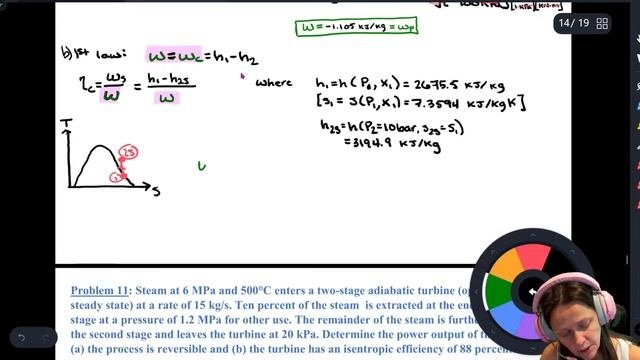 [1 kPa] [kN·m]
14 / 19
W = -1.105 kJ/kg = wp
b) 1st law: w = wc = h1 - h2
ηc = ws/w = (h1 - h2s)/w where h1 = h(P1, x1) = 2675.5 kJ/kg
[s1 = s(P1, x1) = 7.3594 kJ/kgK]
h2s = h(P2 = 10bar, s2s = s1)
= 3194.9 kJ/kg
T
2s
1
s
Problem 11: Steam at 6 MPa and 500°C enters a two-stage adiabatic turbine
steady state) at a rate of 15 kg/s. Ten percent of the steam is extracted at the en
stage at a pressure of 1.2 MPa for other use. The remainder of the steam is furth
the second stage and leaves the turbine at 20 kPa. Determine the power output of t
(a) the process is reversible and (b) the turbine has an isentropic efficiency of 88 percen